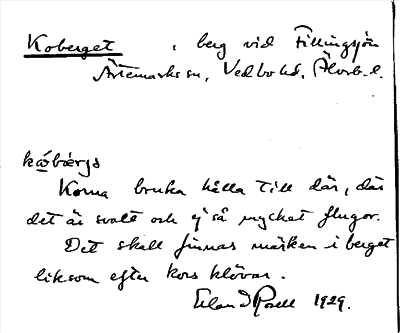 Koberget, berg vid Fillingsjön
Ärtemarks sn, Vedbo hd, Älvsb. l.
kṓbærjə
Korna bruka hålla till där, där
det är svalt och ej så mycket flugor.
Det skall finnas märken i berget
liksom efter kors klövar.
Erland Rosell 1929.